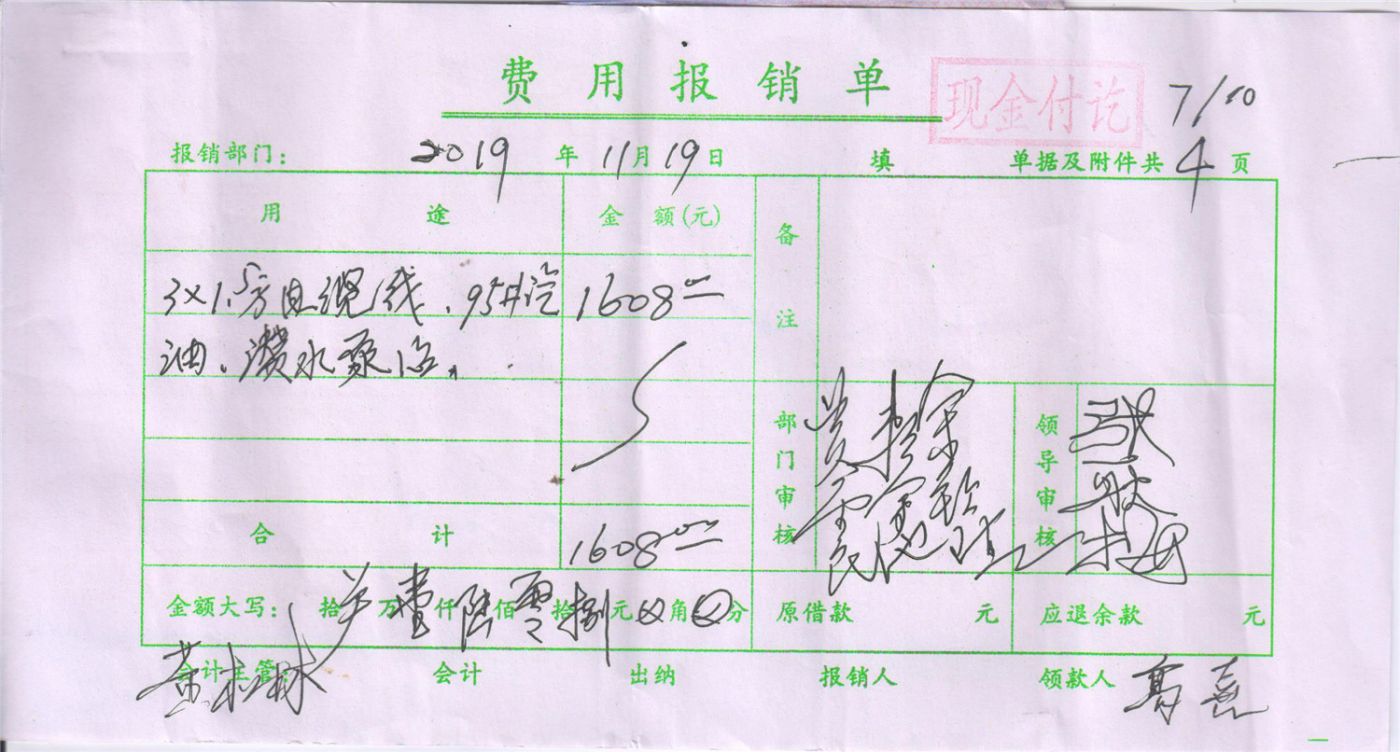 费用报销单
现金付讫
7/10
报销部门： 2019 年 11 月 19 日 填 单据及附件共 4 页
用途 金额(元) 备注
3×1.5方电缆线、95#汽 1608 00
油、潜水泵
合计 1608 00
部门审核 领导审核
金额大写： 拾 万 壹 仟 陆 佰 零 拾 捌 元 0 角 0 分 原借款 元 应退余款 元
会计主管： 会计 出纳 报销人 领款人 高喜